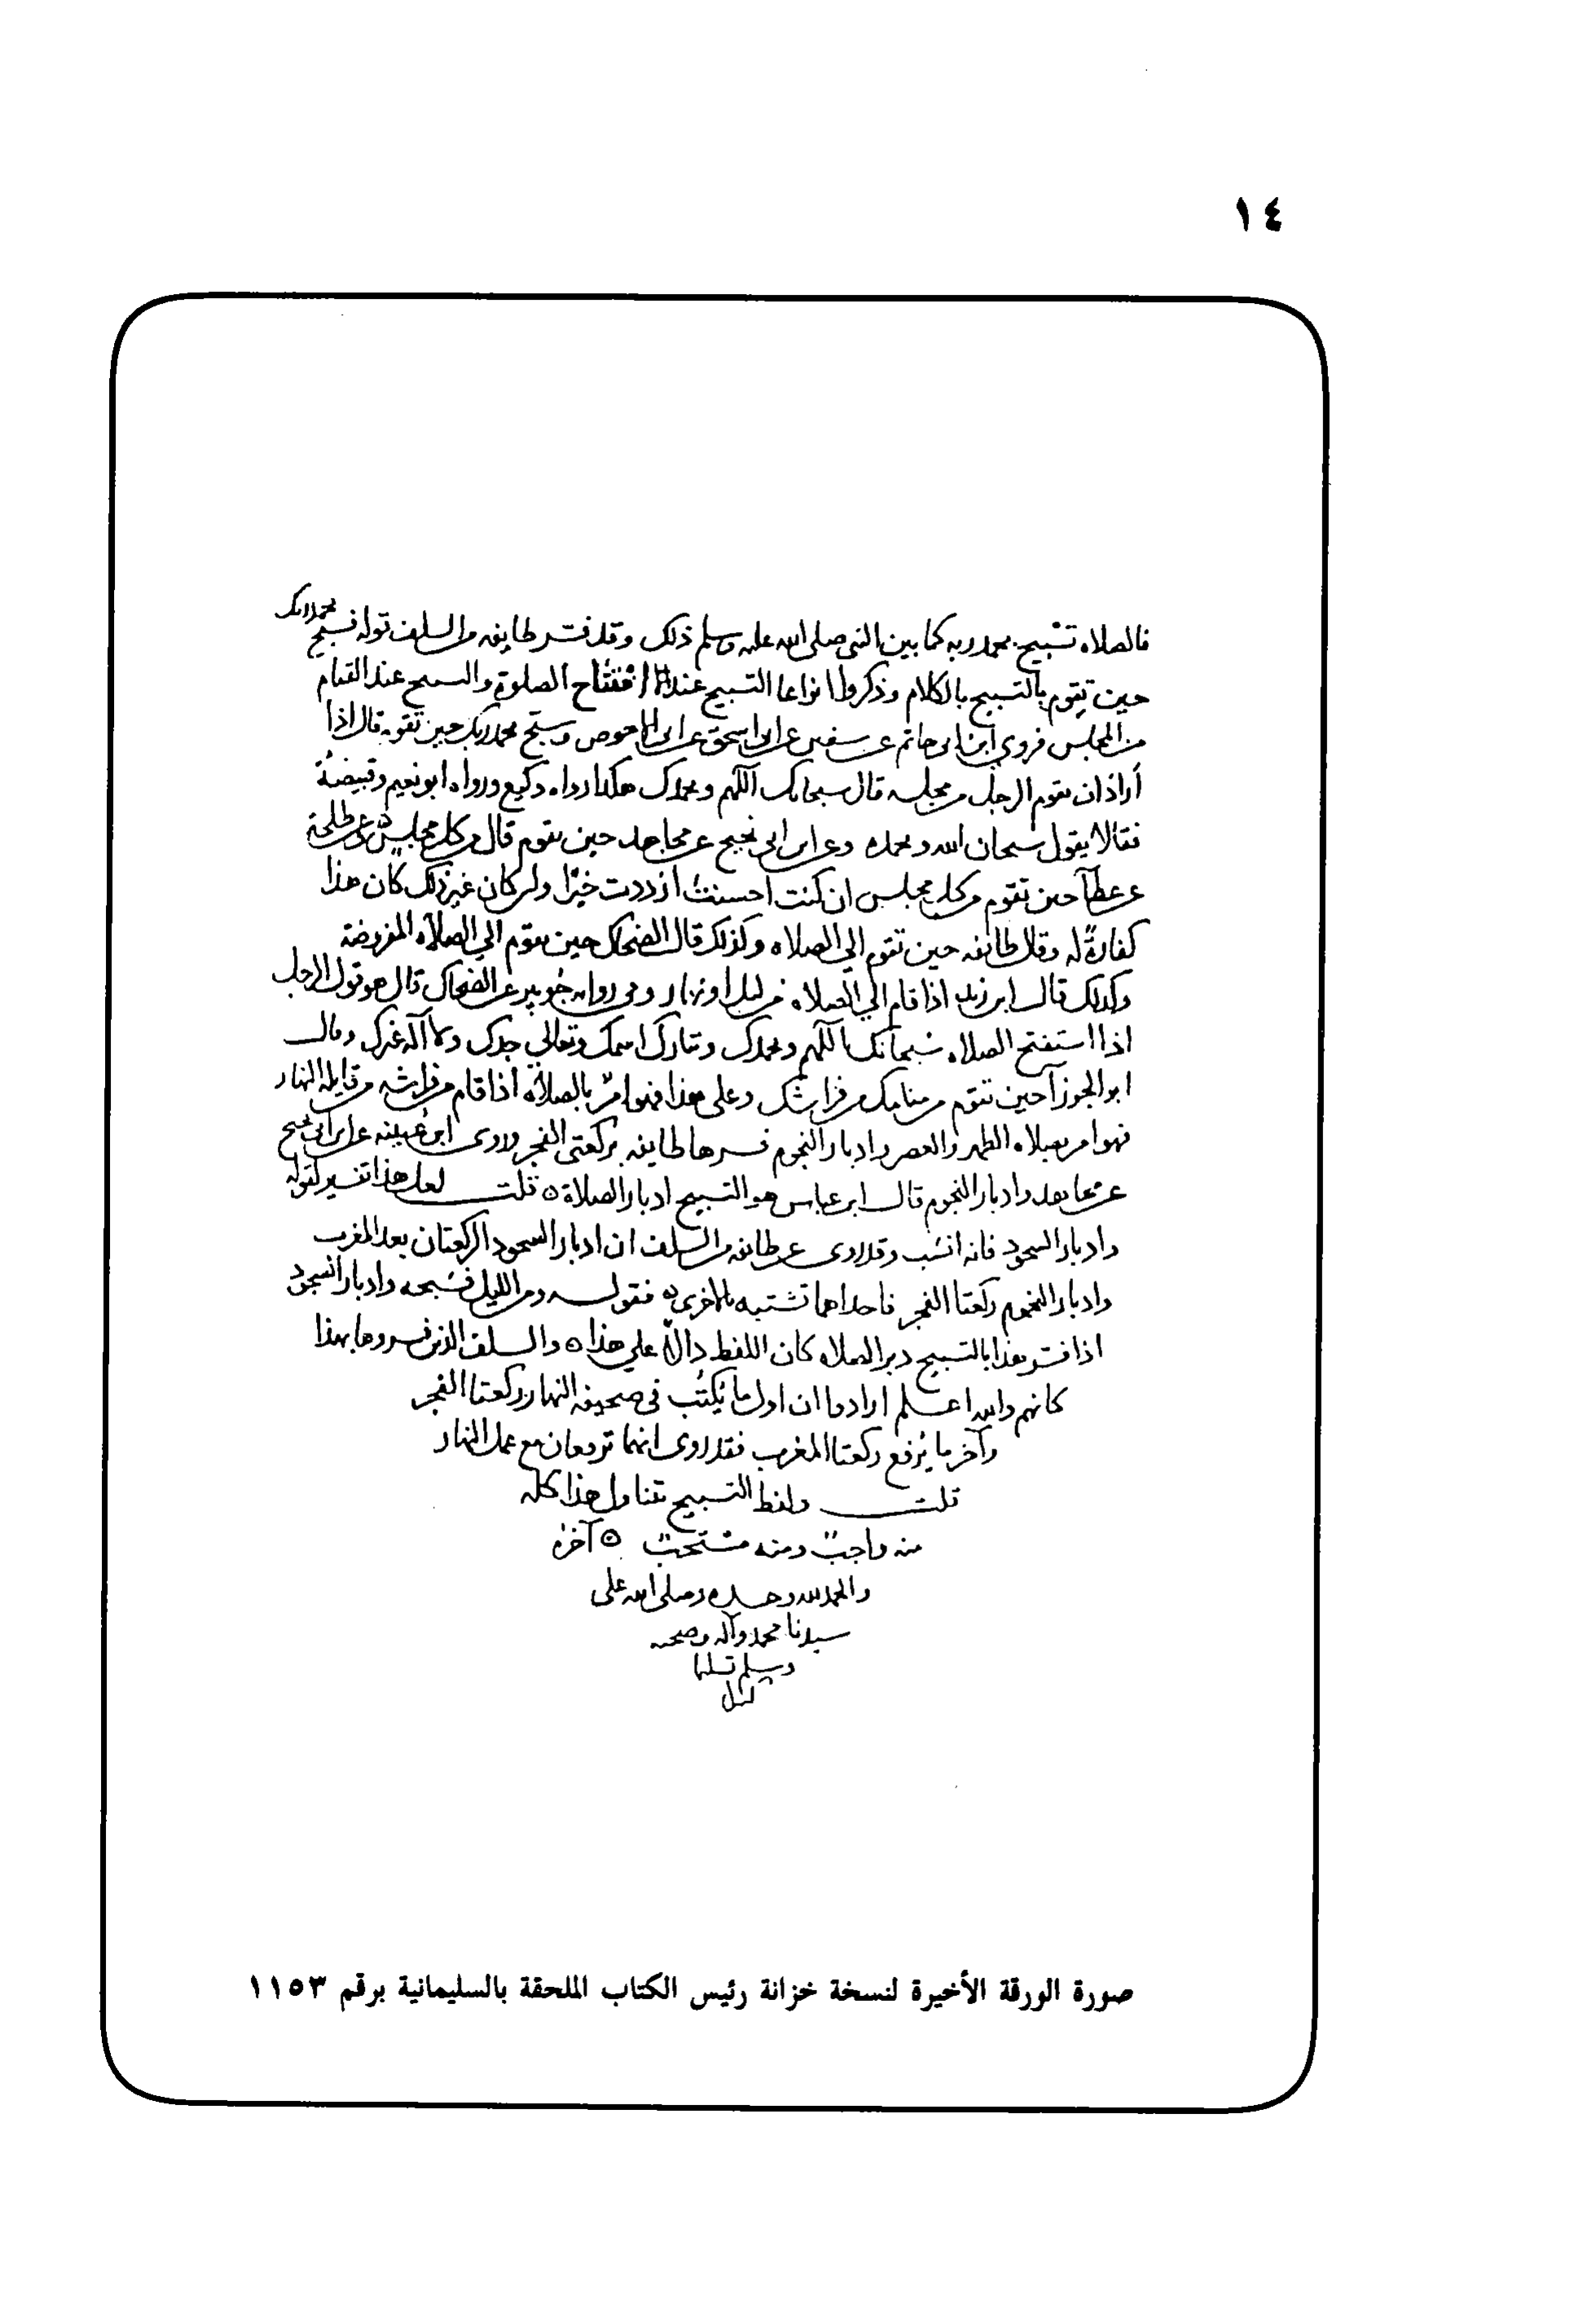 ١٤
فالصلاه تسبيح بحمد ربه كما بين النبي صلى الله عليه وسلم ذلك وقد فسر طايفه من السلف قوله فسبح بحمد ربك
حين تقوم بالتسبيح بالكلام وذكروا انواعا التسبيح عند افتتاح الصلوة والتسبيح عند القيام
من المجلس فروى ابن ابي حاتم عن سفين عن ابي اسحق عن ابي الاحوص وسبح بحمد ربك حين تقوم قال اذا
أراد ان يقوم الرجل من مجلسه قال سبحانك اللهم وبحمدك هكذا رواه وكيع ورواه ابو نعيم وقبيصة
فقالا يقول سبحان الله وبحمده وعن ابن ابي نجيح عن مجاهد حين تقوم قال من كل مجلس وعن طلحة
عن عطآ حين تقوم من كل مجلس ان كنت احسنت ازددت خيرًا وان كان غير ذلك كان هذا
كفارةً له وقال طايفه حين تقوم الي الصلاه وكذلك قال الضحاك حين تقوم الي الصلاه المفروضة
وكذلك قال ابن زيد اذا قام الي الصلاه من ليل او نهار وفي روايه جويبر عن الضحاك قال هو قول الرجل
اذا استفتح الصلاه سبحانك اللهم وبحمدك وتبارك اسمك وتعالي جدك ولا آله غيرك وقال
ابو الجوزآ حين تقوم من منامك من فراشك وعلى هذا فهو امر بالصلاه اذا قام من فراشه من قايله النهار
فهو امر بصلاه الظهر والعصر وادبار النجوم فسرها طايفه بركعتي الفجر وروى ابن عيينه عن ابن ابي نجيح
عن مجاهد وادبار النجوم قال ابن عباس هو التسبيح ادبار الصلاة ٥ قلت لعل هذا تفسير لقوله
وادبار السجود فانه انسب وقد روى عن طايفه من السلف ان ادبار السجود الركعتان بعد المغرب
وادبار النجوم ركعتا الفجر فاحداهما تشتبه بالاخرى ٥ فقوله ومن الليل فسبحه وادبار السجود
اذا فسر هذا بالتسبيح دبر الصلاه كان اللفظ دالّا علي هذا ٥ والسلف الذين فسروها بهذا
كانهم والله اعلم ارادوا ان اول ما يُكتُب في صحيفه النهار ركعتا الفجر
وآخر ما يُرفع ركعتا المغرب فقد روى انهما ترفعان مع عمل النهار
قلت ولفظ التسبيح يتناول هذا كله
منه واجبٌ ومنه مستحبٌ ٥ آخره
والحمد لله وحده وصلى الله على
سيدنا محمد وآله وصحبه
وسلم تسليما
صورة الورقة الأخيرة لنسخة خزانة رئيس الكتاب الملحقة بالسليمانية برقم ١١٥٣